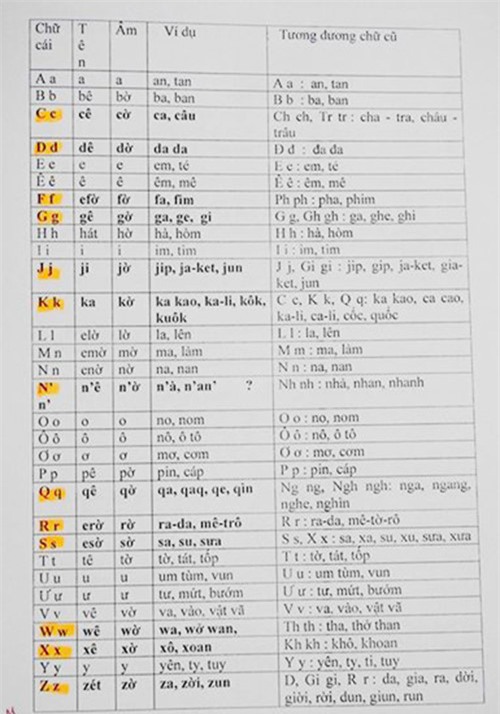 Chữ cái Tên Âm Ví dụ Tương đương chữ cũ
A a a a an, tan A a : an, tan
B b bê bờ ba, ban B b : ba, ban
C c cê cờ ca, câu Ch ch, Tr tr : cha - tra, châu -
trâu
D d dê dờ da da Đ đ : đa đa
E e e e em, té E e : em, té
Ê ê ê ê êm, mê Ê ê : êm, mê
F f efờ fờ fa, fim Ph ph : pha, phim
G g gê gờ ga, ge, gi G g, Gh gh : ga, ghe, ghi
H h hát hờ hà, hòm H h : hà, hòm
I i i i im, tim I i : im, tim
J j ji jờ jip, ja-ket, jun J j, Gi gi : jip, gip, ja-ket, gia-
ket, jun
K k ka kờ ka kao, ka-li, kôk, C c, K k, Q q: ka kao, ca cao,
kuôk ka-li, ca-li, cốc, quốc
L l elờ lờ la, lên L l : la, lên
M n emờ mờ ma, làm M m : ma, làm
N n enờ nờ na, nan N n : na, nan
N' n'ê n'ờ n'à, n'an' ? Nh nh : nhà, nhan, nhanh
n'
O o o o no, nom O o : no, nom
Ô ô ô ô nô, ô tô Ô ô : nô, ô tô
Ơ ơ ơ ơ mơ, cơm Ơ ơ : mơ, cơm
P p pê pờ pin, cáp P p : pin, cáp
Q q qê qờ qa, qaq, qe, qin Ng ng, Ngh ngh: nga, ngang,
nghe, nghin
R r erờ rờ ra-da, mê-trô R r : ra-da, mê-tờ-rô
S s esờ sờ sa, su, sưa S s, X x : sa, xa, su, xu, sưa, xưa
T t tê tờ tờ, tát, tốp T t : tờ, tát, tốp
U u u u um tùm, vun U u : um tùm, vun
Ư ư ư ư tư, mứt, bướm Ư ư : tư, mứt, bướm
V v vê vờ va, vào, vật vã V v : va, vào, vật vã
W w wê wờ wa, wở wan, Th th : tha, thở than
X x xê xờ xô, xoan Kh kh : khô, khoan
Y y y y yên, ty, tuy Y y : yên, ty, ti, tuy
Z z zét zờ za, zời, zun D, Gi gi, R r : da, gia, ra, dời,
giời, rời, dun, giun, run